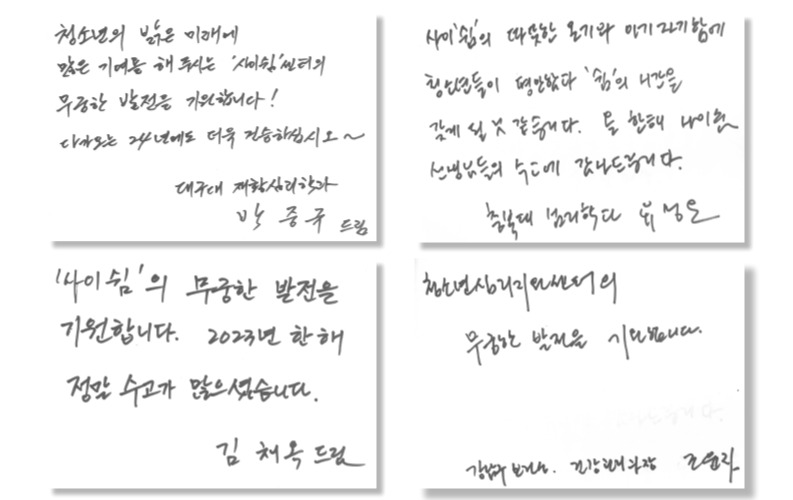 청소년의 밝은 미래에
많은 기여를 해 주시는 '사이쉼'센터의
무궁한 발전을 기원합니다!
다가오는 24년에도 더욱 건승하십시오~
대구대 재활심리학과
박 중 규 드림
사이'쉼'의 따뜻한 온기와 아기자기함에
청소년들이 평안했다 '쉼'의 시간을
갖게 될 것 같습니다. 올 한해
선생님들의 수고에 감사드립니다.
충북대 심리학과
'사이쉼'의 무궁한 발전을
기원합니다. 2023년 한 해
정말 수고가 많으셨습니다.
김 채 옥 드림
청소년심리지원센터의
무궁한 발전을 기원합니다.
강남구 보건소 건강관리과장